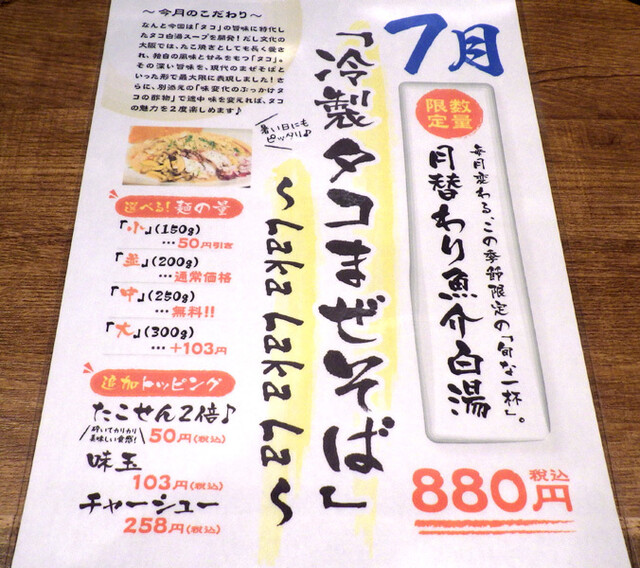 7月
数量
限定
毎月変わる、この季節限定の「旬な一杯」。
月替わり魚介白湯
880円
税込
「冷製タコまぜそば」
〜Laka Laka La〜
暑い日にも
ピッタリ♪
〜今月のこだわり〜
なんと今回は「タコ」の旨味に特化し
たタコ白湯スープを開発！だし文化の
大阪では、たこ焼きとしても長く愛さ
れ、独自の風味と甘みをもつ「タコ」。
その深い旨味を、現代のまぜそばと
いった形で最大限に表現しました！さ
らに、別添えの「味変化のぶっかけタ
コの酢物」で途中味を変えれば、タコ
の魅力を２度楽しめます♪
選べる！麺の量
「小」(150g)
…50円引き
「並」(200g)
…通常価格
「中」(250g)
…無料!!
「大」(300g)
…+103円
追加トッピング
たこせん2倍♪
砕いてカリカリ
美味しい食感！
50円(税込)
味玉
103円(税込)
チャーシュー
258円(税込)